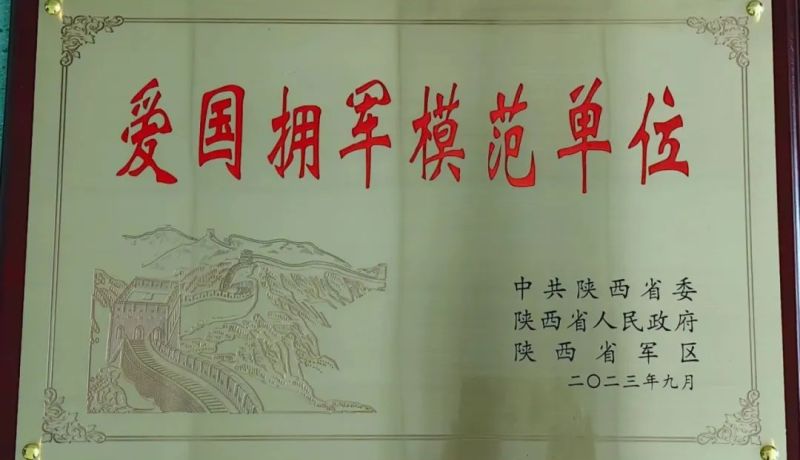 爱国拥军模范单位
中共陕西省委
陕西省人民政府
陕西省军区
二〇二三年九月